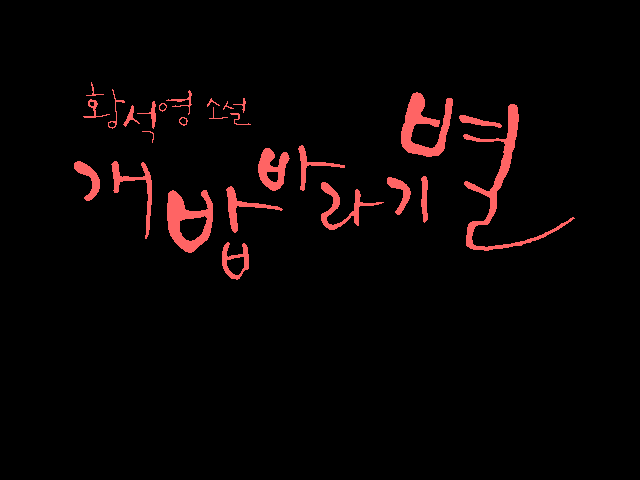 황석영 소설
개밥바라기별